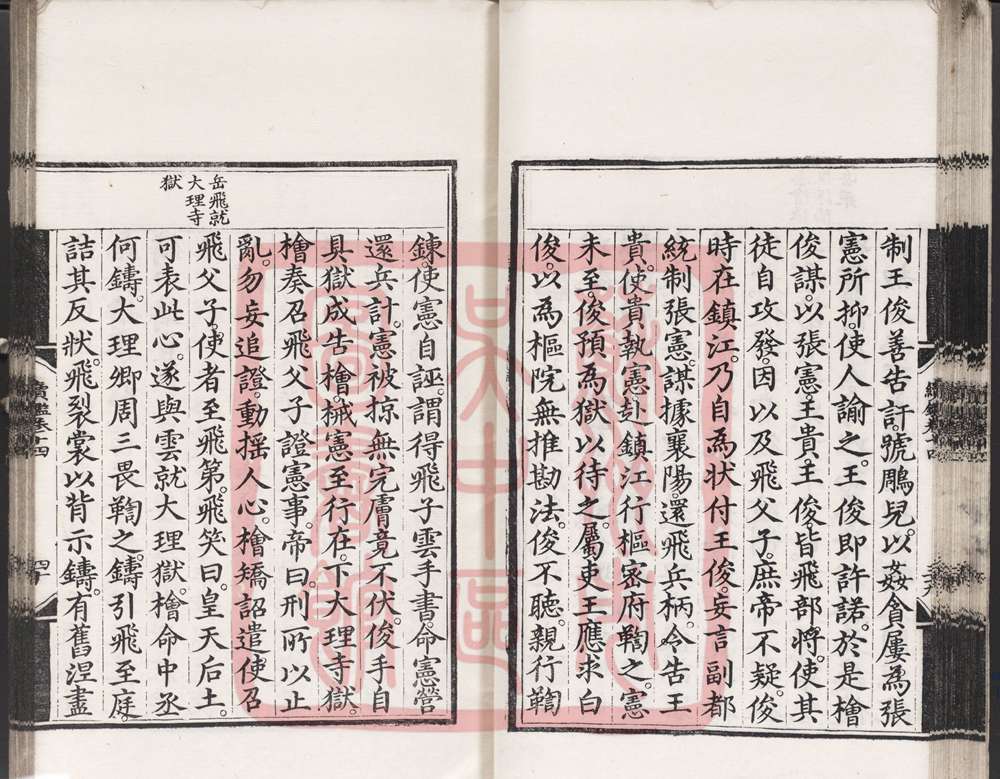 制王俊善告訐號鵰兒。以姦貪屢為張
憲所抑。使人諭之。王俊即許諾。於是檜
俊謀。以張憲。王貴王俊。皆飛部將。使其
徒自攻發。因以及飛父子。庶帝不疑。俊
時在鎮江。乃自為狀付王俊。妄言副都
統制張憲。謀據襄陽。還飛兵柄。令告王
貴。使貴執憲赴鎮江行樞密府鞫之。憲
未至。俊預為獄以待之。屬吏王應求白
俊。以為樞院無推勘法。俊不聽。親行鞫
岳飛就
大理寺
獄
鍊使憲自誣。謂得飛子雲手書命憲營
還兵計。憲被掠無完膚竟不伏。俊手自
具獄成告檜。械憲至行在。下大理寺獄。
檜奏召飛父子證憲事。帝曰。刑所以止
亂。勿妄追證。動搖人心。檜矯詔遣使召
飛父子。使者至飛第。飛笑曰。皇天后土。
可表此心。遂與雲就大理獄。檜命中丞
何鑄。大理卿周三畏鞫之。鑄引飛至庭。
詰其反狀。飛裂裳以背示鑄。有舊涅盡